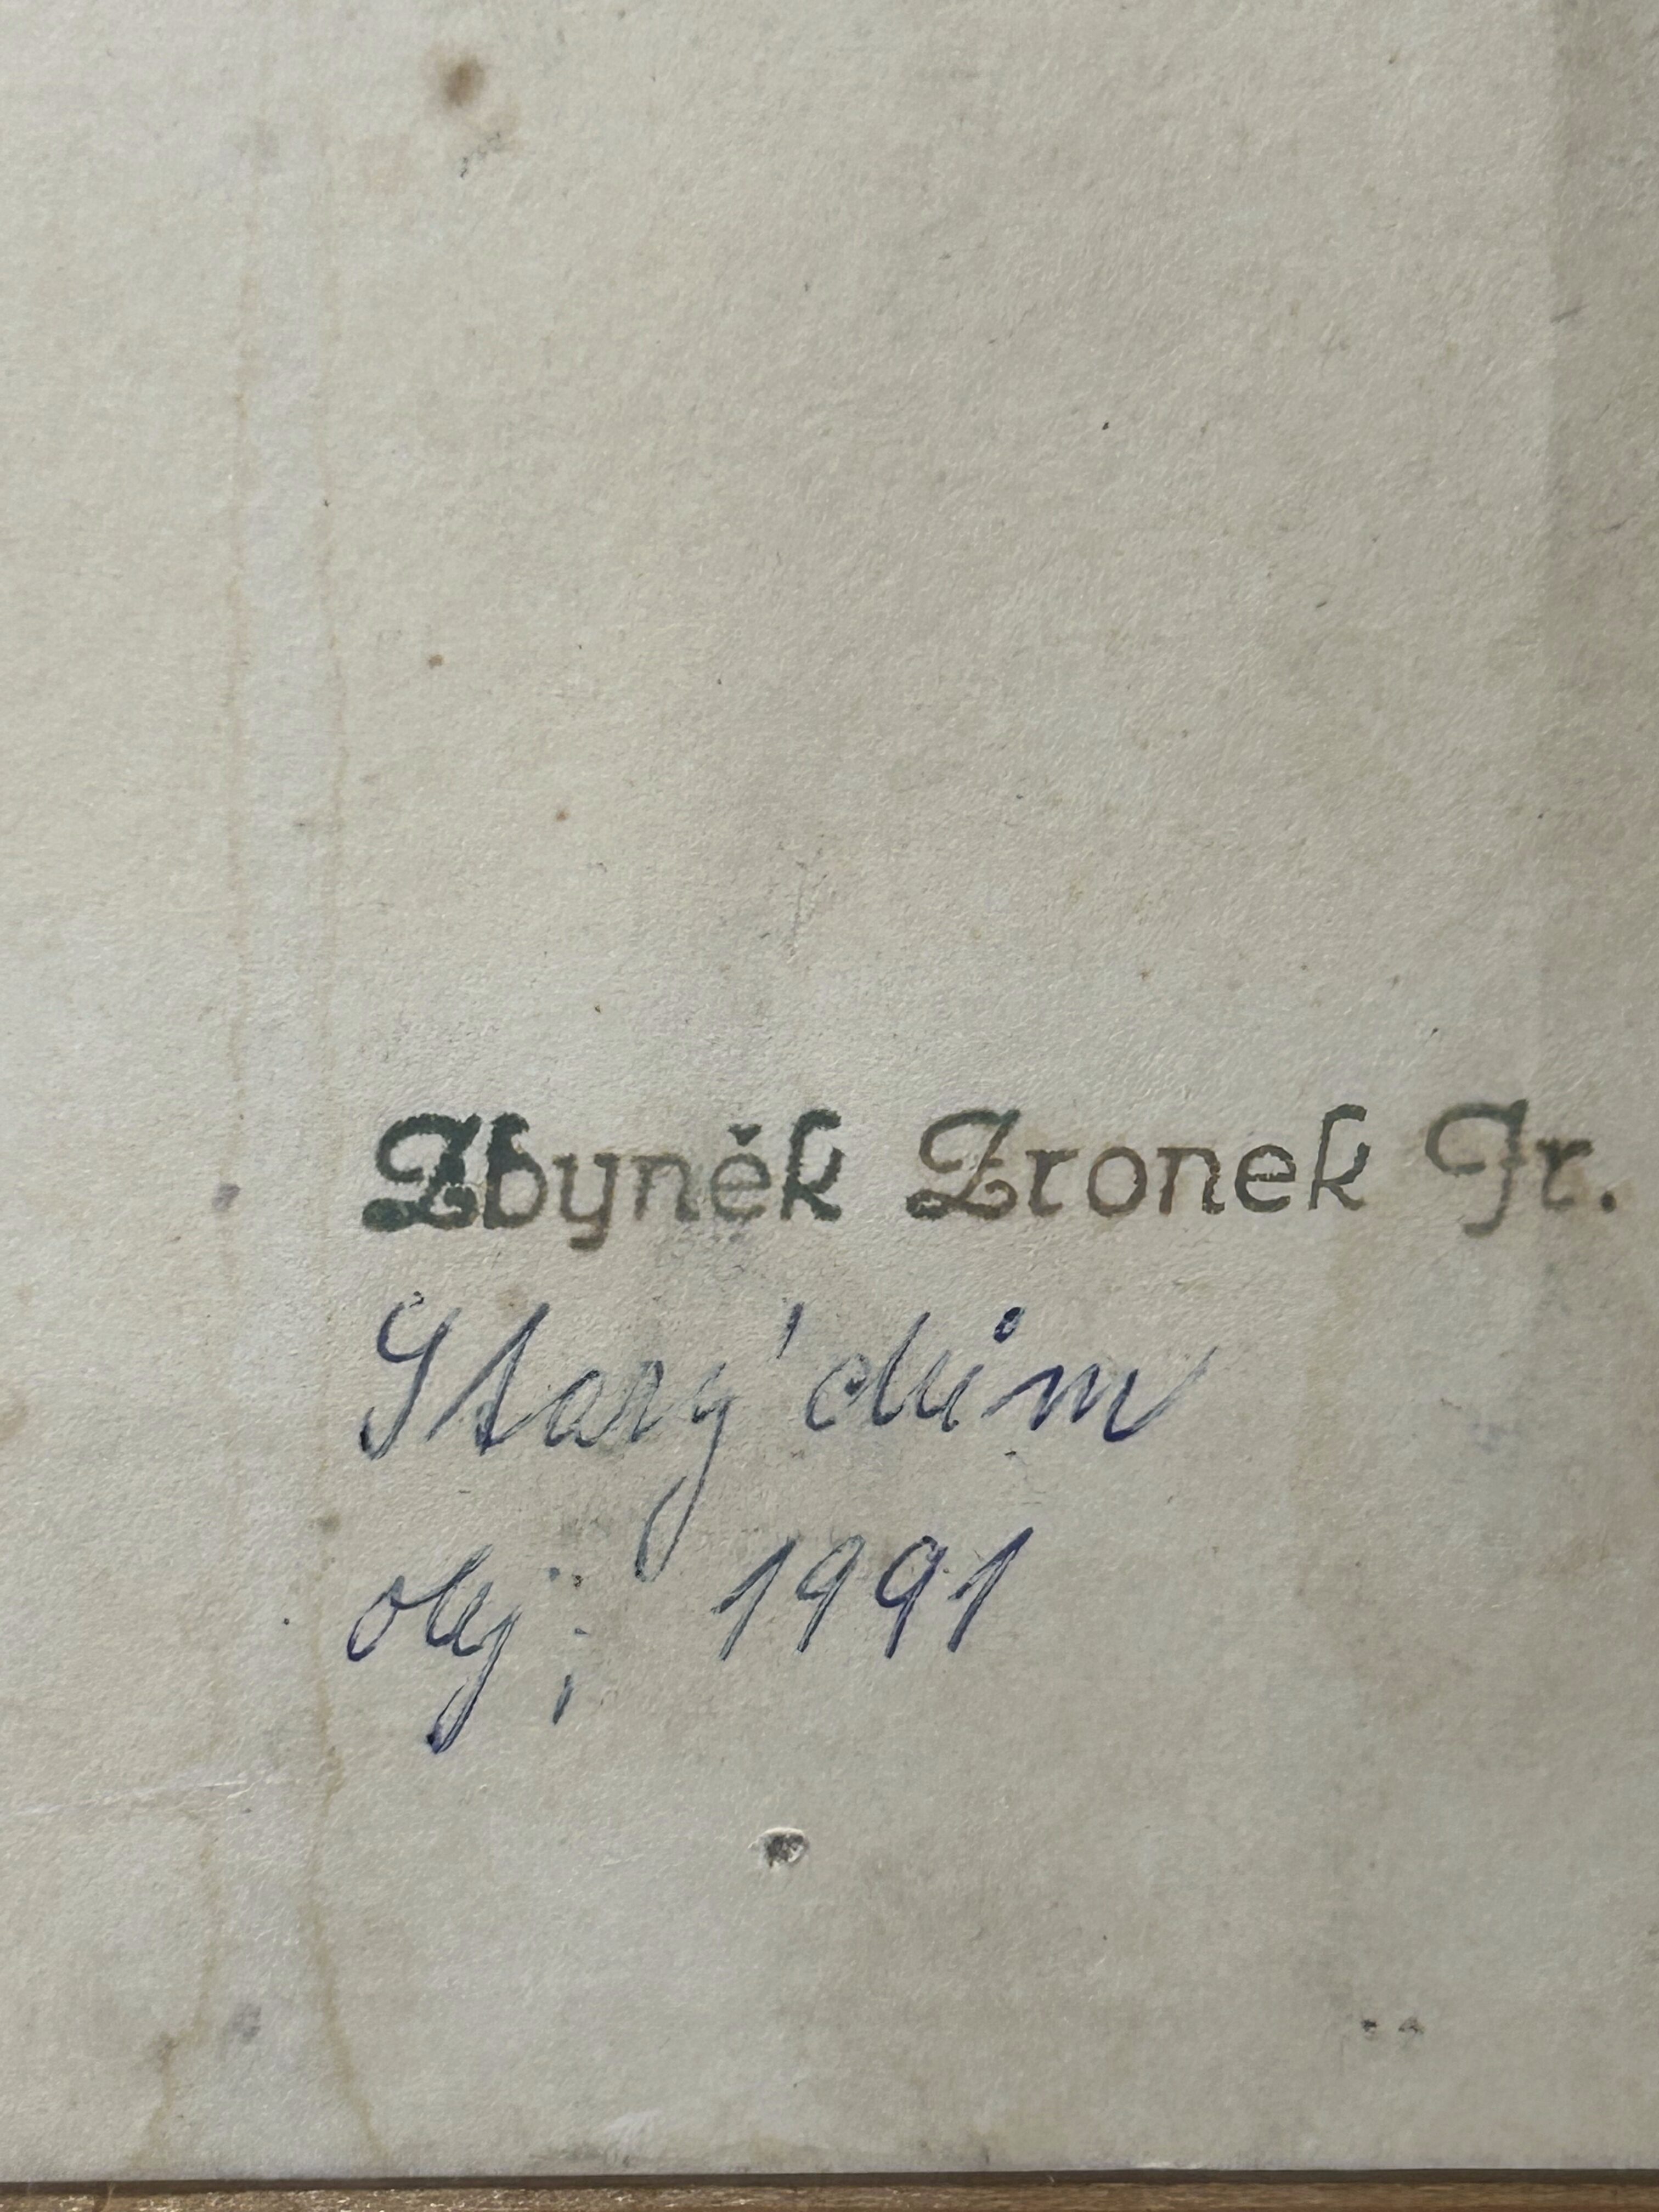 Zbyněk Zronek Jr.
Starý dům
olej, 1991